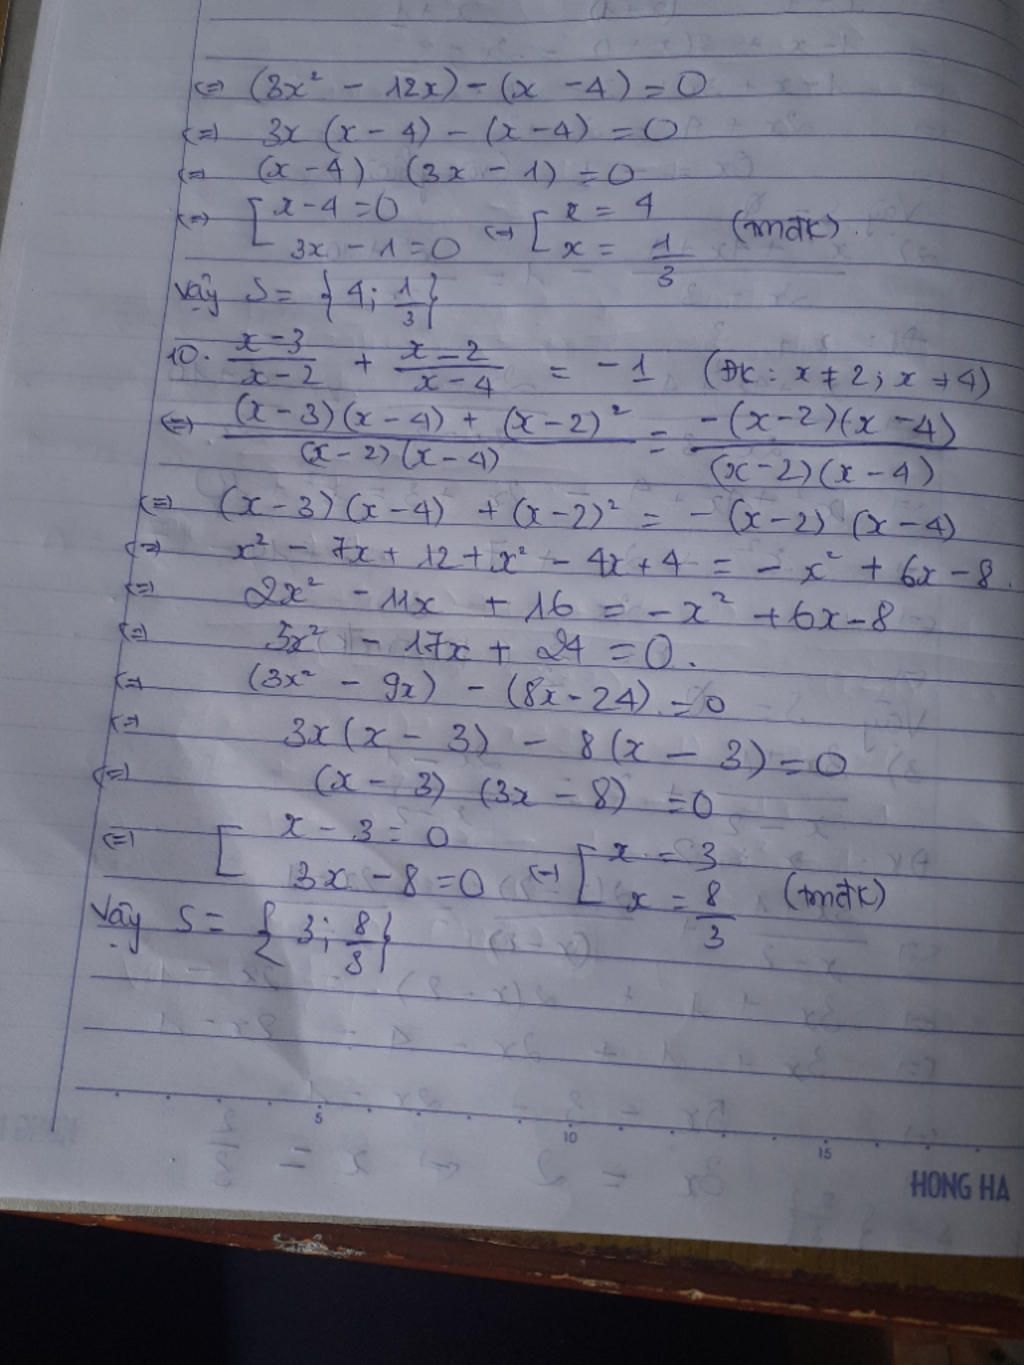 <=> (3x² - 12x) - (x - 4) = 0
<=> 3x (x - 4) - (x - 4) = 0
<=> (x - 4) (3x - 1) = 0
<=> [ x - 4 = 0 <=> [ x = 4 (tmđk).
3x - 1 = 0 x = 1/3
Vậy S = { 4; 1/3 }
10. (x - 3)/(x - 2) + (x - 2)/(x - 4) = -1 (ĐK: x ≠ 2; x ≠ 4)
<=> ((x - 3)(x - 4) + (x - 2)²)/((x - 2)(x - 4)) = (-(x - 2)(x - 4))/((x - 2)(x - 4))
<=> (x - 3)(x - 4) + (x - 2)² = -(x - 2)(x - 4)
<=> x² - 7x + 12 + x² - 4x + 4 = -x² + 6x - 8.
<=> 2x² - 11x + 16 = -x² + 6x - 8
<=> 3x² - 17x + 24 = 0.
<=> (3x² - 9x) - (8x - 24) = 0
<=> 3x(x - 3) - 8(x - 3) = 0
<=> (x - 3) (3x - 8) = 0
<=> [ x - 3 = 0 <=> [ x = 3 (tmđk)
3x - 8 = 0 x = 8/3
Vậy S = { 3; 8/3 }
5 10 15
HONG HA